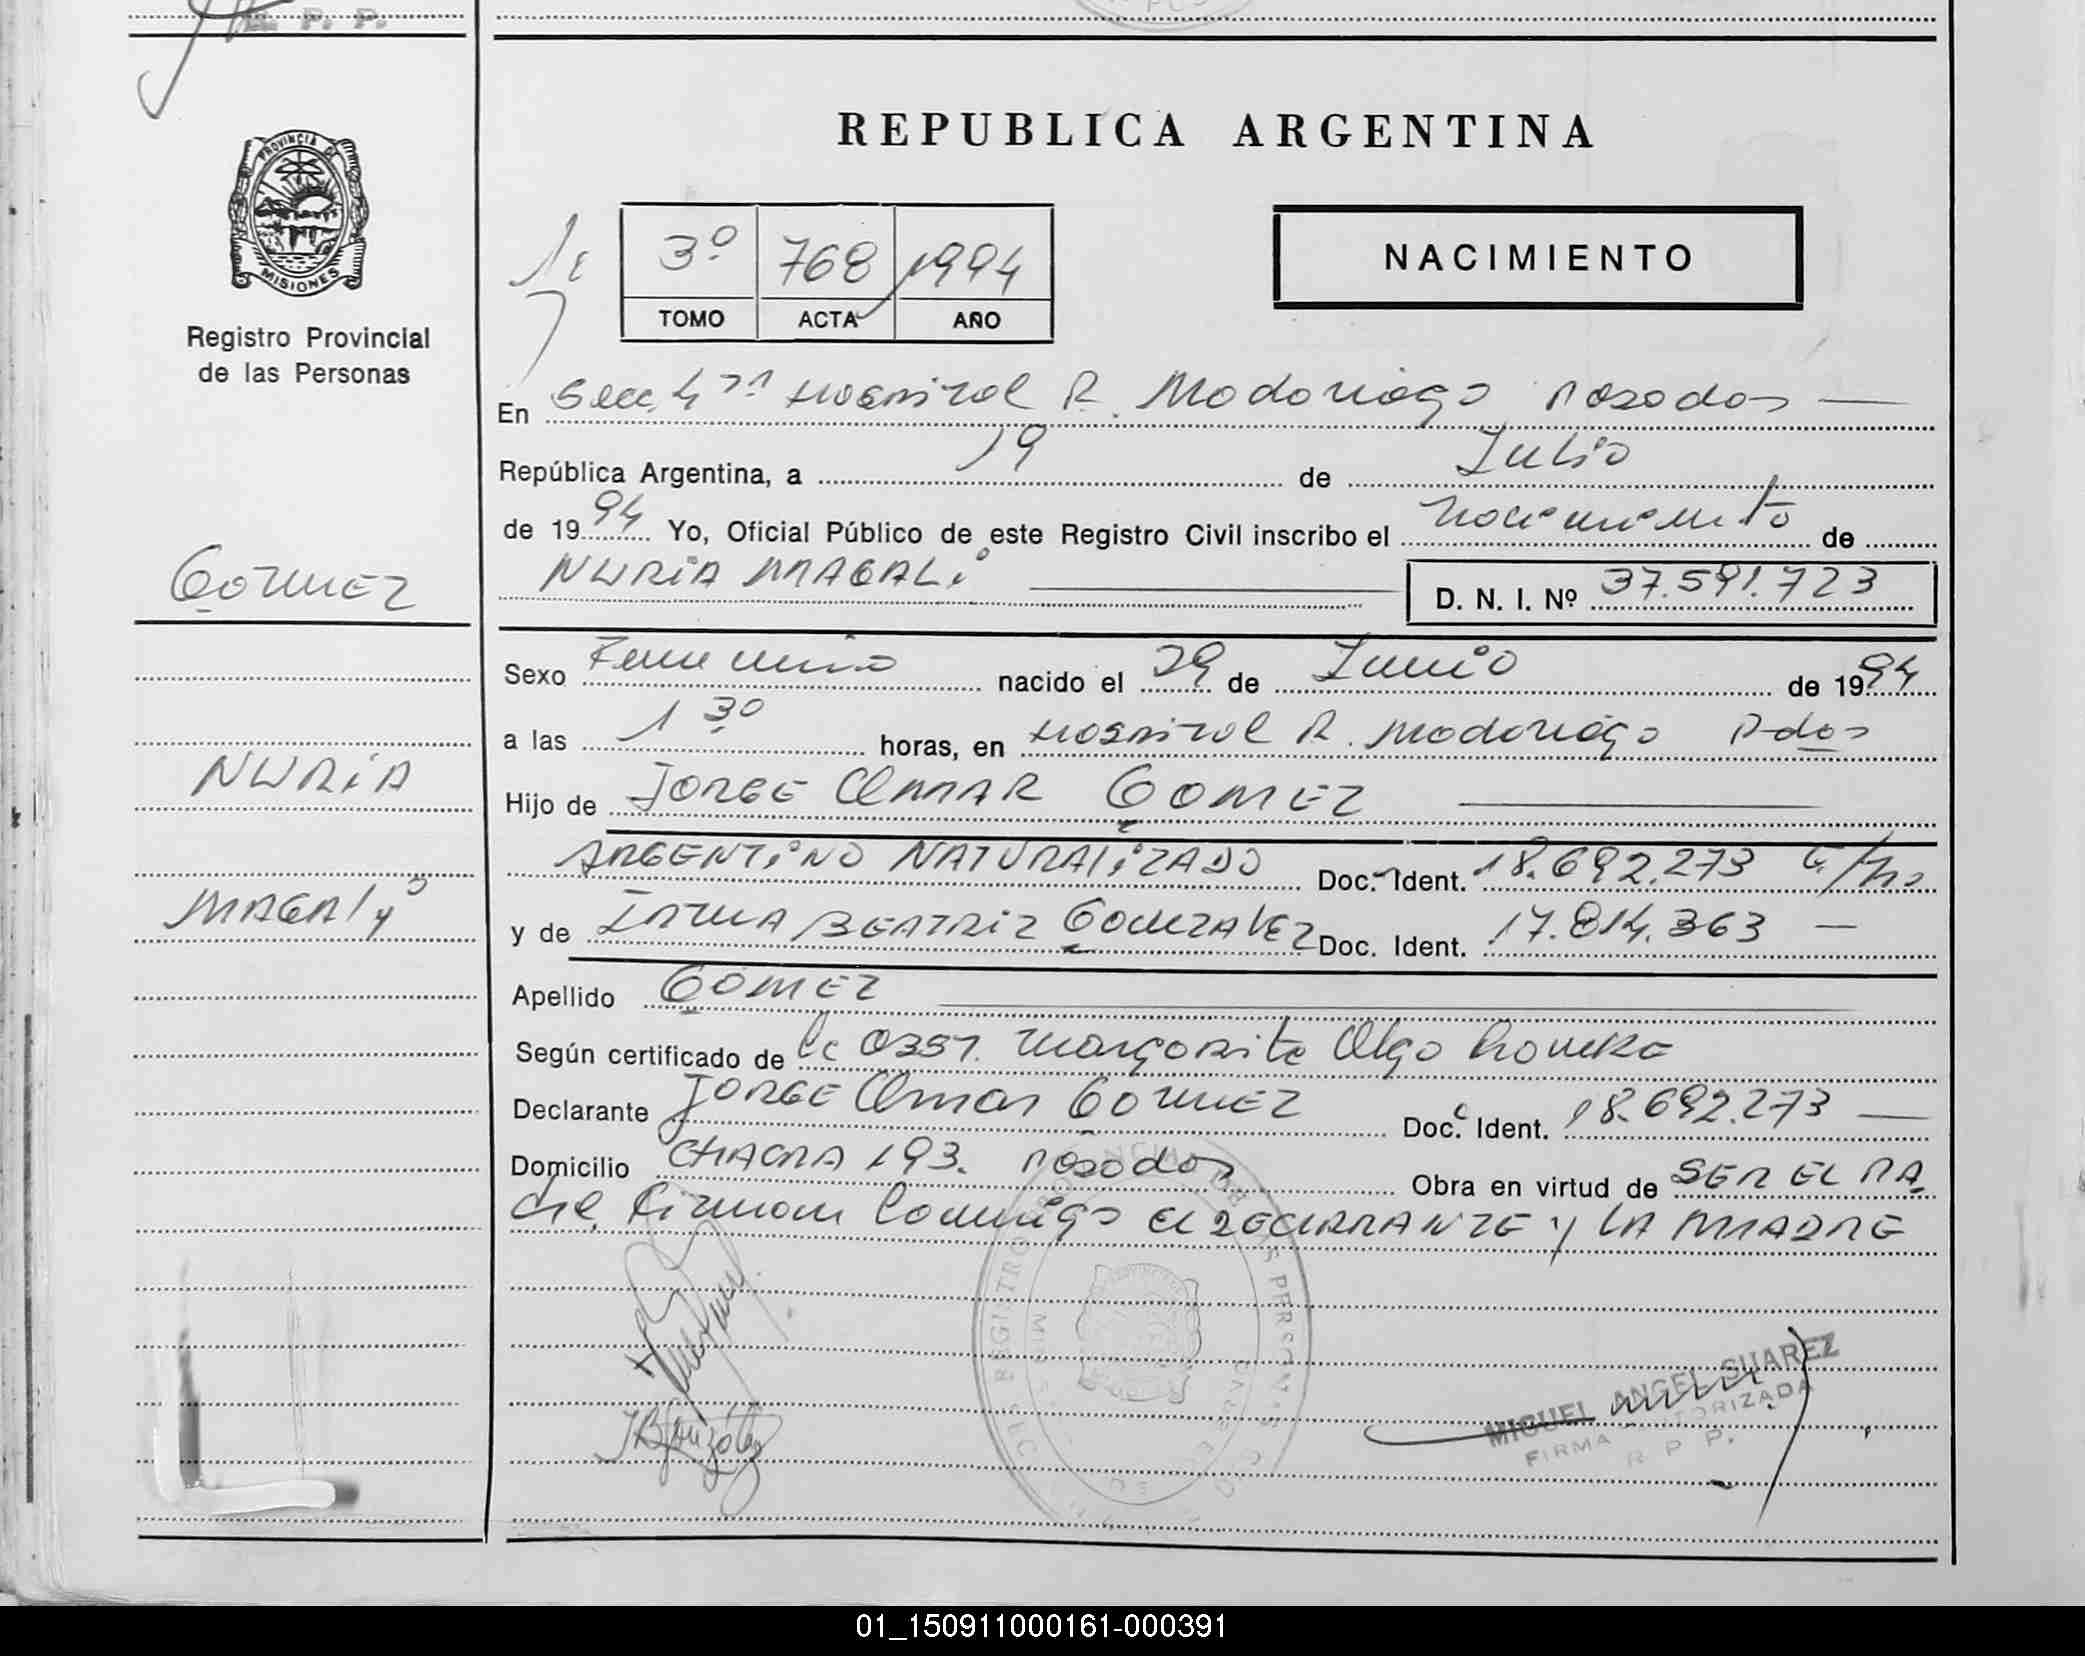 R. P. P.
REPUBLICA ARGENTINA
PROVINCIA DE
MISIONES
Registro Provincial
de las Personas
3º 768 1994
TOMO ACTA AÑO
NACIMIENTO
En Secc. 4ta Hospital R. Madariaga Posadas —
República Argentina, a 19 de Julio
de 1994 Yo, Oficial Público de este Registro Civil inscribo el nacimiento de
NURIA MAGALI D. N. I. Nº 37.591.723
Sexo Femenino nacido el 29 de Junio de 1994
a las 1 30 horas, en Hospital R. Madariaga Pdas
Hijo de JORGE OMAR GOMEZ
ARGENTINO NATURALIZADO Doc. Ident. 18.692.273
y de IRMA BEATRIZ GONZALEZ Doc. Ident. 17.814.363 —
Apellido GOMEZ
Según certificado de la Obst. Margarita Olga
Declarante JORGE Omar GOMEZ Doc. Ident. 18.692.273 —
Domicilio CHACRA 193. Posadas Obra en virtud de SER EL PA
dre. Firman conmigo el DECLARANTE y LA MADRE
GOMEZ
NURIA
MAGALI
IBGonzález
REGISTRO PROVINCIAL DE LAS PERSONAS
MIGUEL ANGEL SUAREZ
FIRMA AUTORIZADA
R P P.
01_150911000161-000391